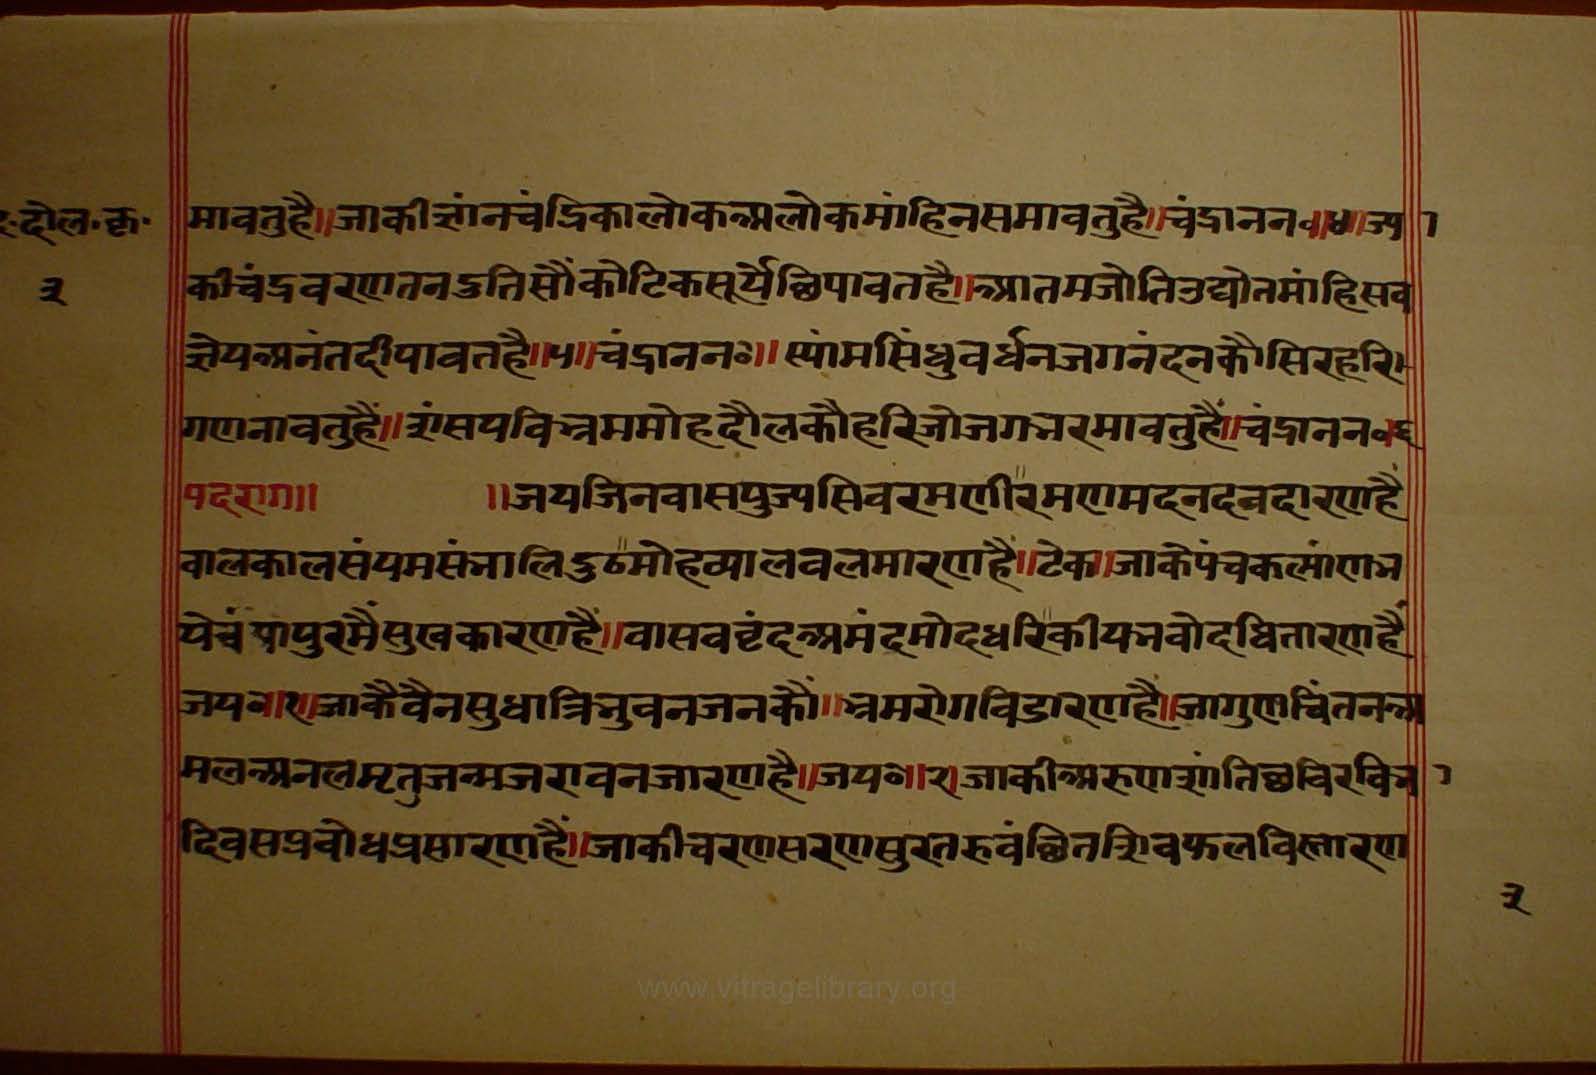 दोल॰कृ॰
३
मावतुहै॥जाकीग्यांनचंद्रिकालोकअलोकमांहिनसमावतुहै॥चंद्रानन॰॥४॥ज्या
कीचंद्रवरणतनदुतिसौंकोटिकसूर्यछिपावतहै॥आतमजोतिउद्योतमांहिसव
ज्ञेयअनंतदीपावतहै॥५॥चंद्रानन॰॥स्यांमसिंधुवर्धनजगनंदनकौसिरहरि
गणनावतुहैं॥संसयविभ्रममोहदौलकौहरिजोजगभरमावतुहैं॥चंद्रानन॰६
पदराग॥ ॥जयजिनवासपुज्यसिवरमणीरमणमदनदनुदारणहैं
वालकालसंयमसंभालिदुठमोहव्यालवलमारणहैं॥टेक॥जाकेपंचकल्यांणभ
येचंपापुरमैंसुखकारणहैं॥वासववृंदअमंदमोदधरिकीयभवोदधितारणहैं
जय॰॥१॥जाकैवैनसुधात्रिभुवनजनकौं॥भ्रमरोगविडारणहैं॥जागुणचिंतनअ
मलअनलमृतुजन्मजरावनजारणहै॥जय॰॥२॥जाकीअरुणशांतिछविरविभा
दिवसप्रवोधप्रसारणहैं॥जाकीचरणसरणसुरतरुवंछितशिवफलविस्तारण
३
www.vitragelibrary.org